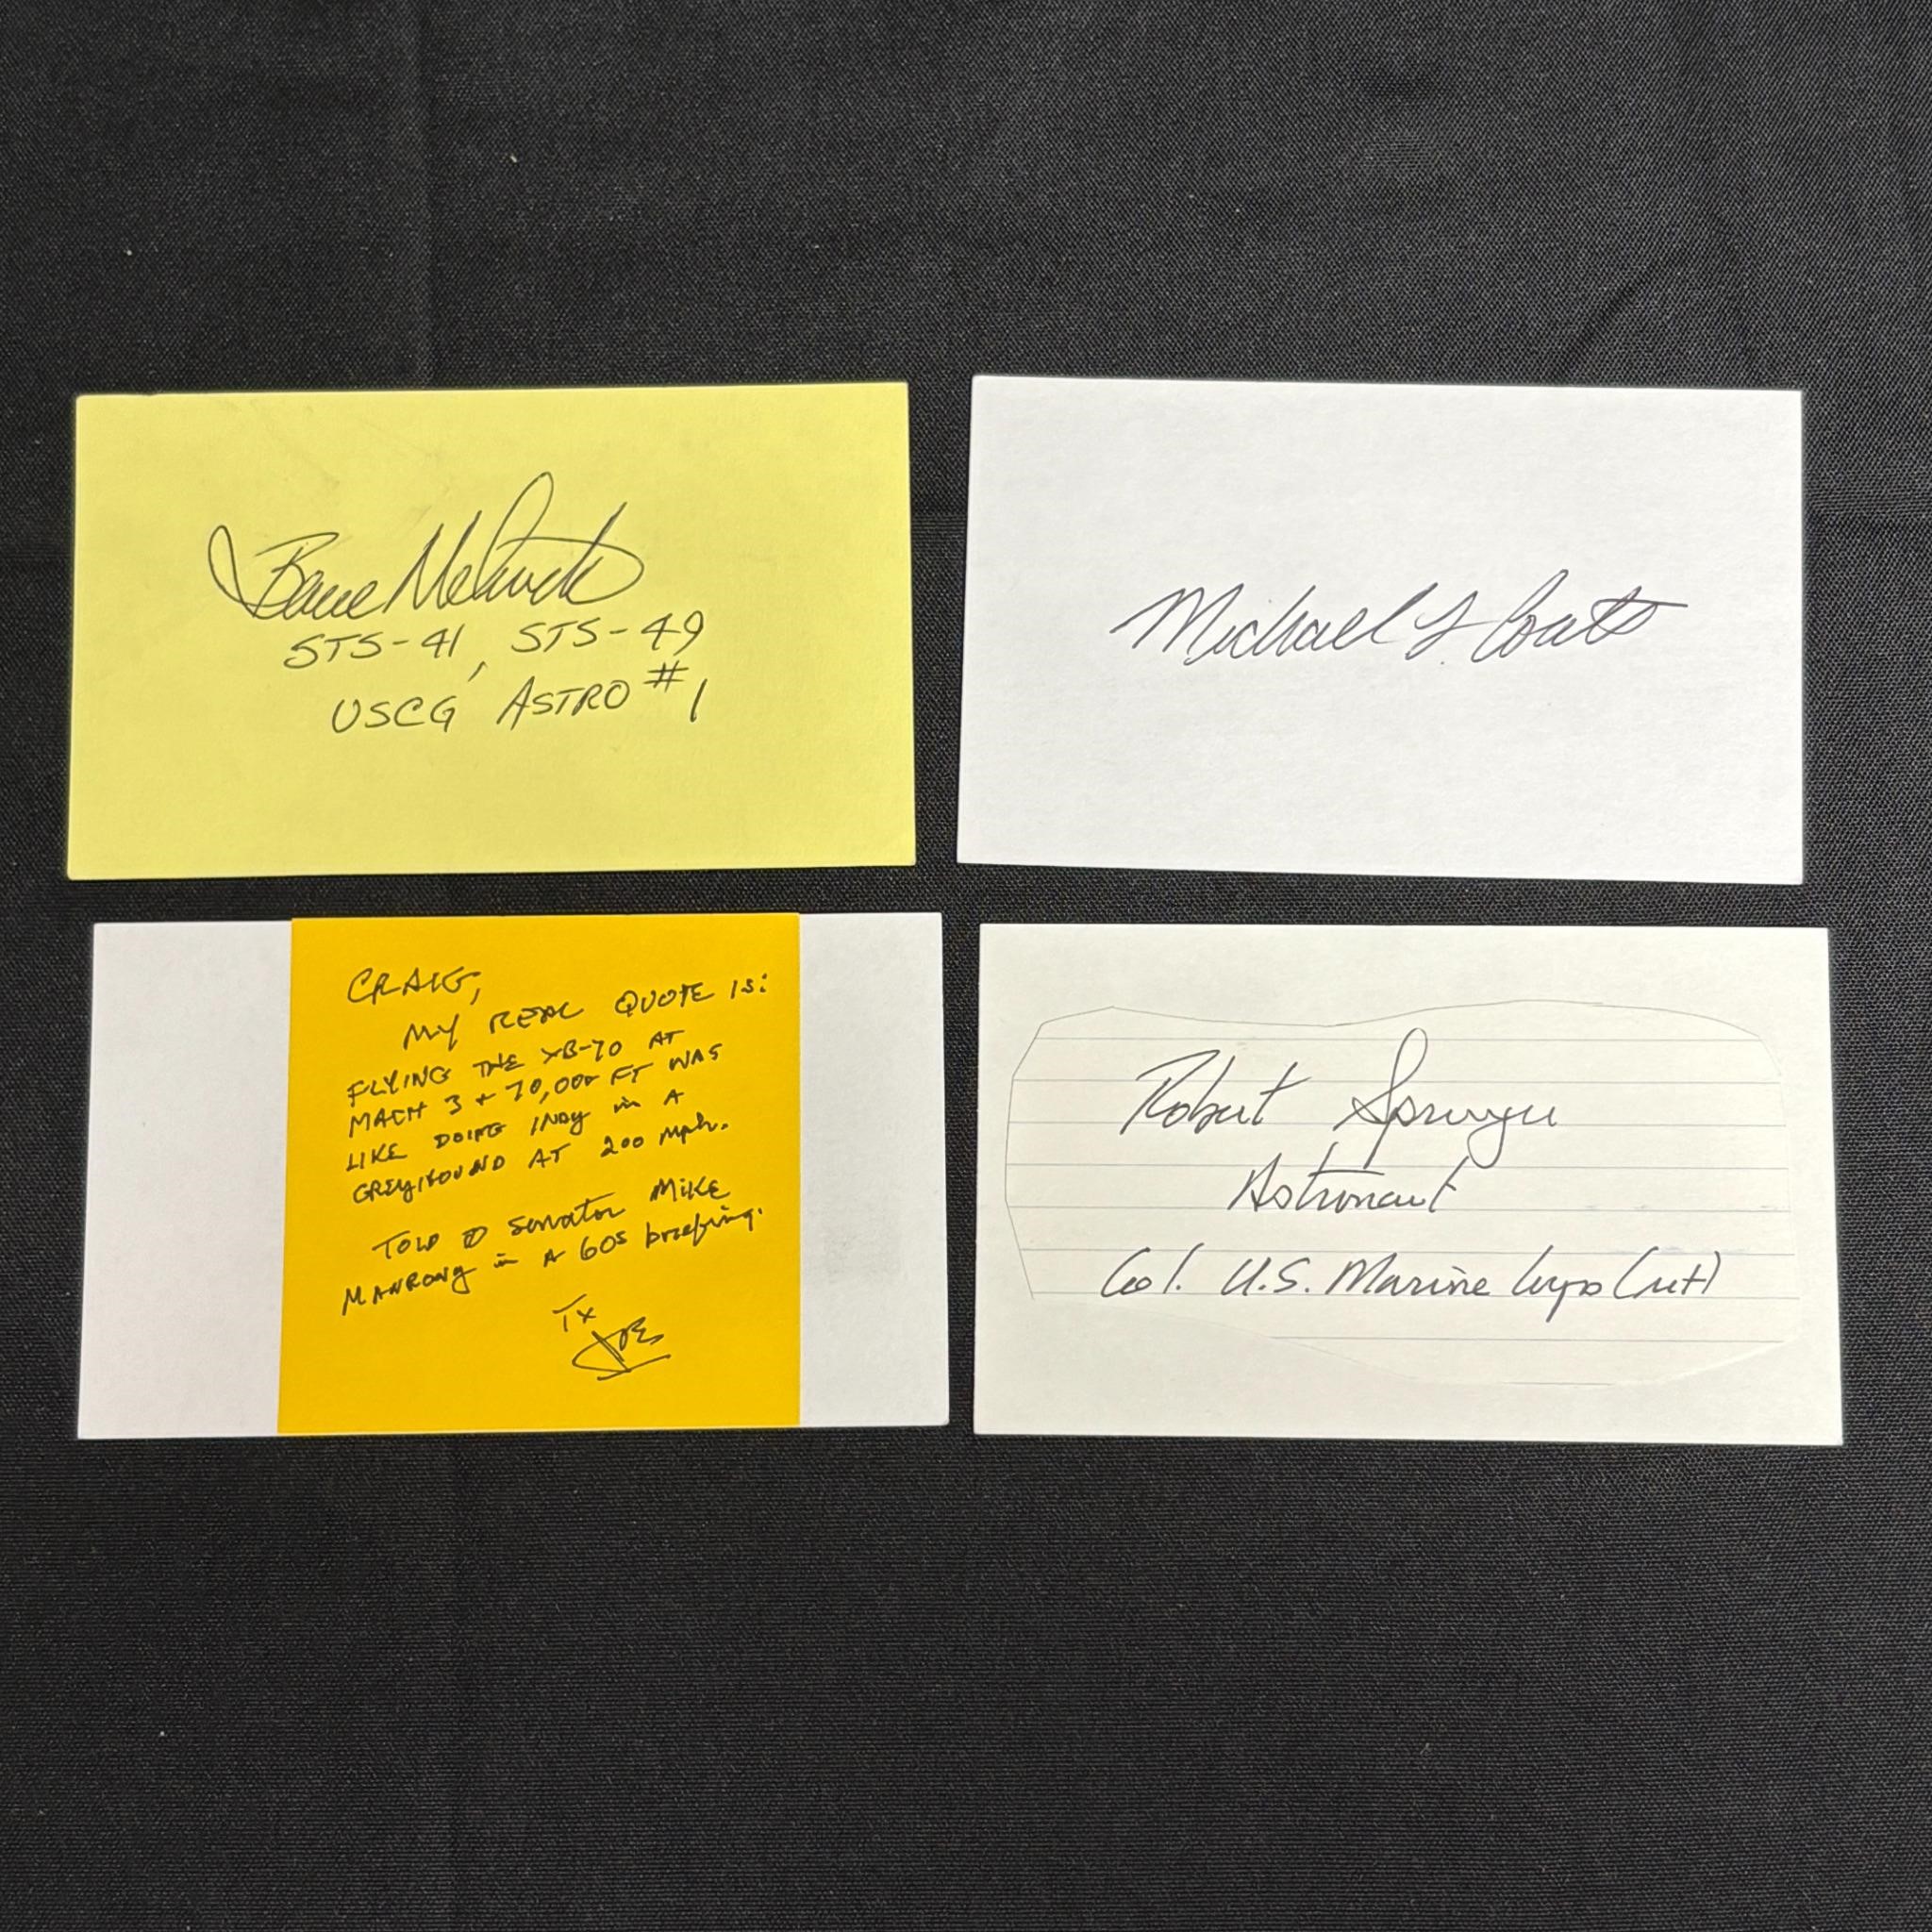 Bruce Melnick
STS-41, STS-49
USCG ASTRO #1
Michael L Coats
CRAIG,
MY REAL QUOTE IS:
FLYING THE XB-70 AT
MACH 3 + 70,000 FT WAS
LIKE DOING INDY in A
GREYHOUND AT 200 mph.
TOLD Senator MIKE
MANRONY in A 60s briefing.
Tx
JOE
Robert Springer
Astronaut
Col. U.S. Marine Corps (ret)